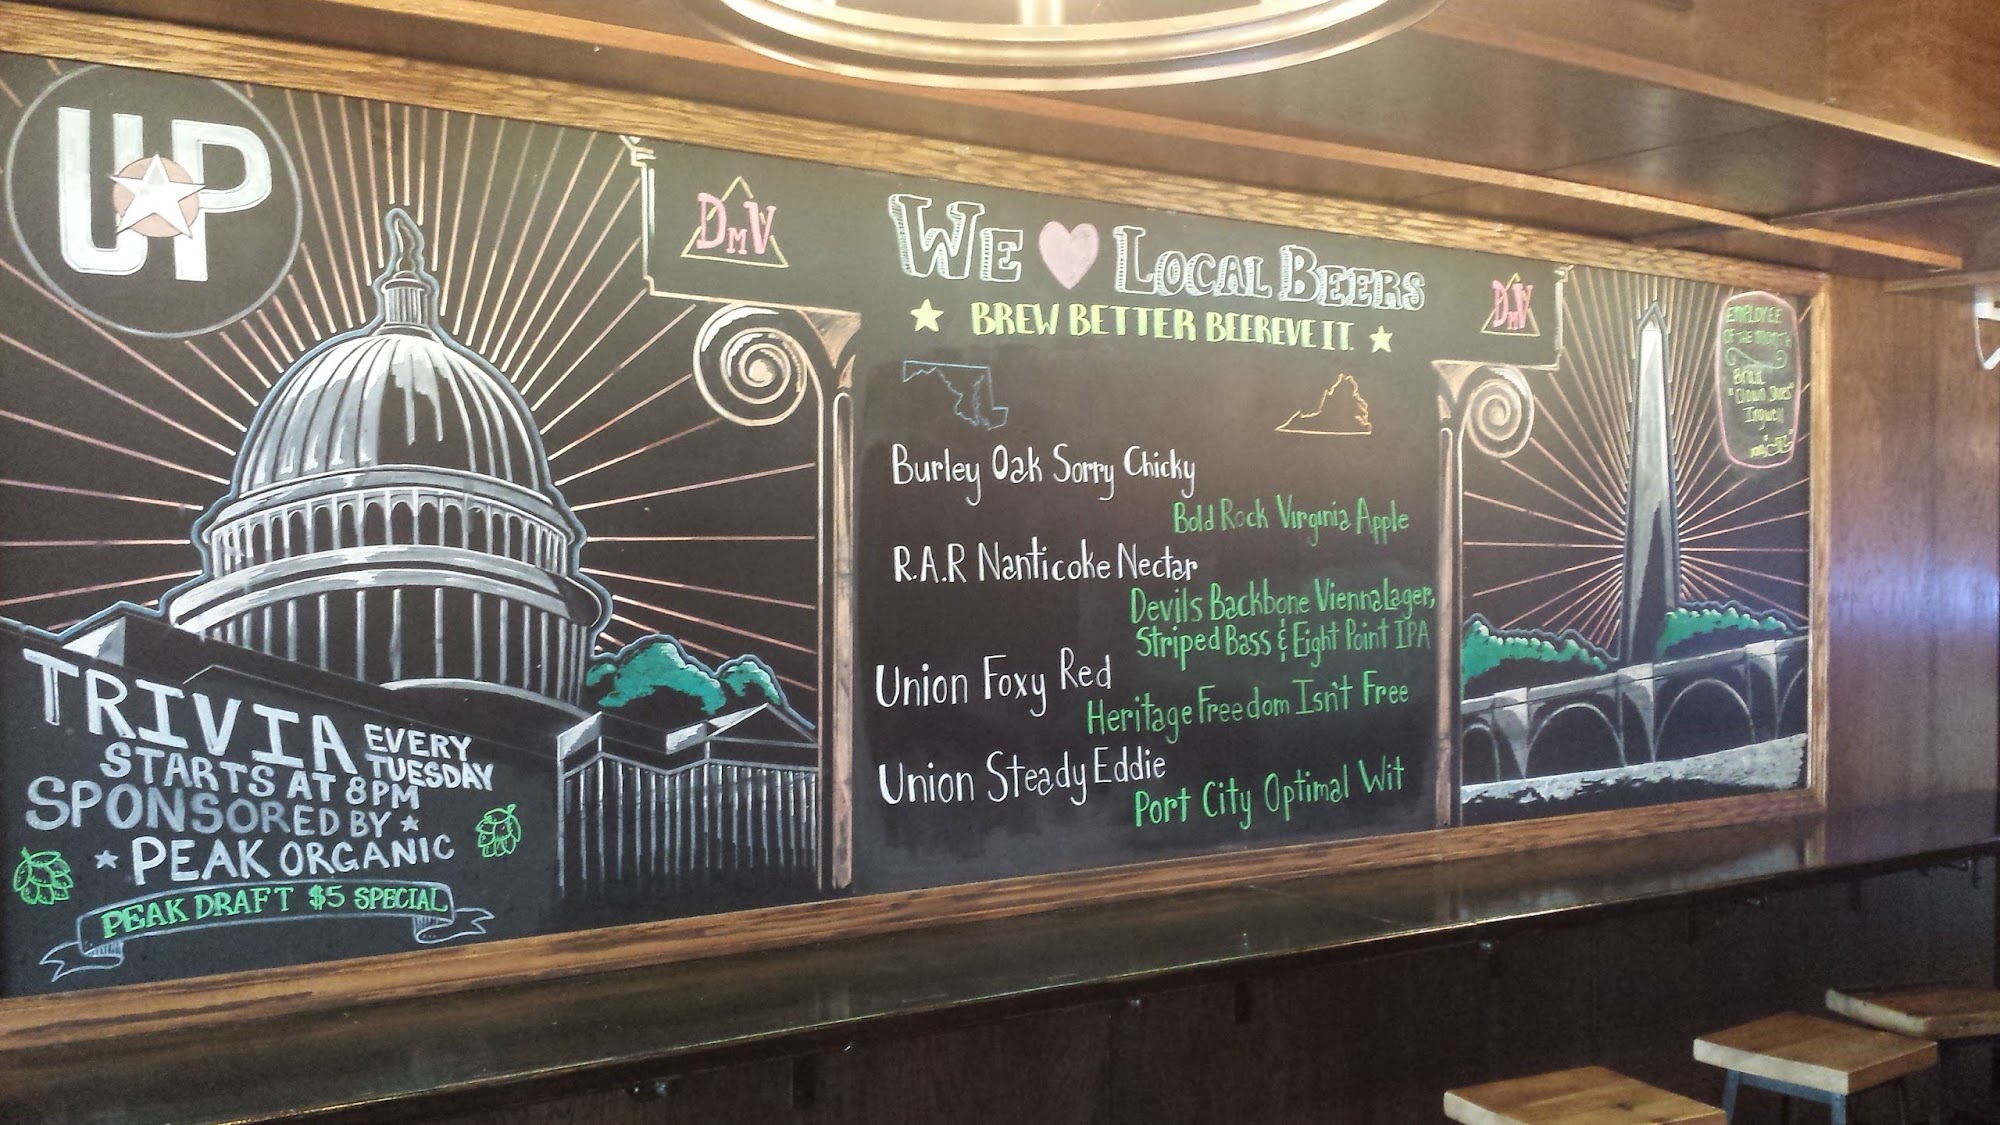 UP
DMV
WE LOCAL BEERS
DMV
BREW BETTER BEEREVE IT.
EMPLOYEE
OF THE MONTH
Brad
"Clown Shoes"
Ingwell
Burley Oak Sorry Chicky
Bold Rock Virginia Apple
R.A.R Nanticoke Nectar
Devils Backbone Vienna Lager,
Striped Bass & Eight Point IPA
Union Foxy Red
Heritage Freedom Isn't Free
Union Steady Eddie
Port City Optimal Wit
TRIVIA EVERY TUESDAY
STARTS AT 8PM
SPONSORED BY
PEAK ORGANIC
PEAK DRAFT $5 SPECIAL